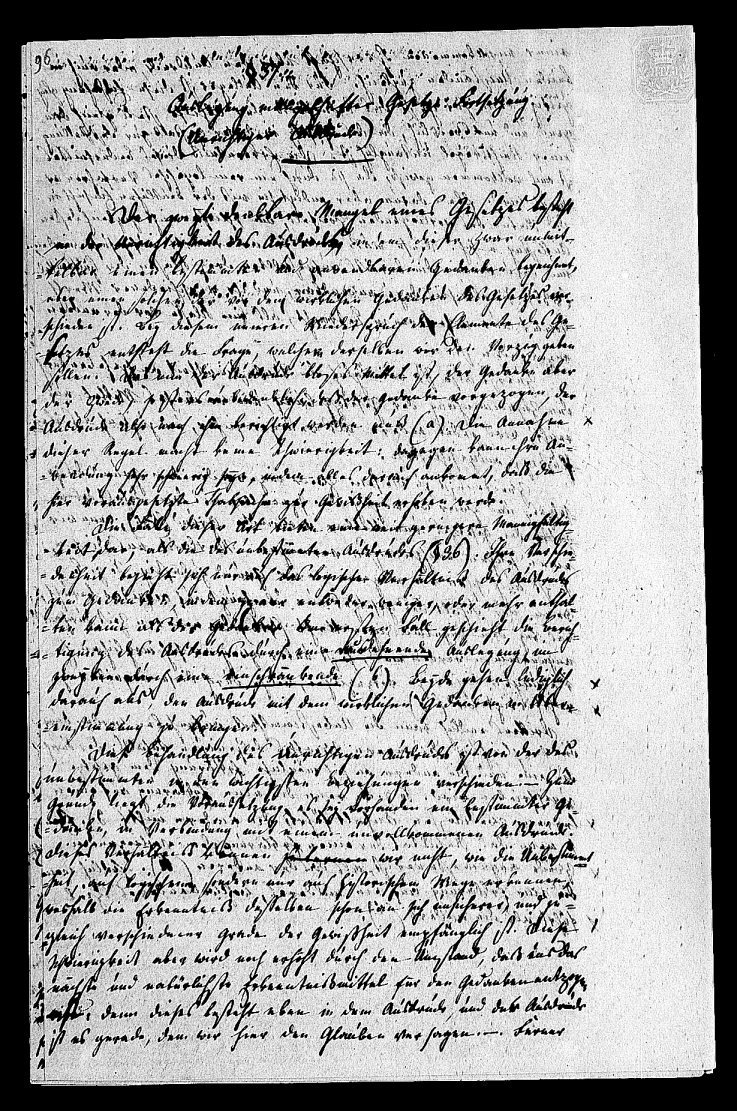 96
§ 37.
Auslegung mangelhafter Gesetze. Fortsetzung
(Unrichtiger Ausdruck)
Der zweite denkbare Mangel eines Gesetzes besteht
in der Unrichtigkeit des Ausdrucks, indem dieser zwar unmit-
telbar einen bestimmten und anwendbaren Gedanken bezeichnet,
aber einen solchen der von dem wirklichen Gedanken des Gesetzes ver-
schieden ist. Bey diesem inneren Widerspruch der Elemente des Ge-
setzes entsteht die Frage, welchem derselben wir den Vorzug geben
sollen. Da nun der Ausdruck bloses Mittel ist, der Gedanke aber
der Zweck, so der Gedanke vorgezogen, der
Ausdruck also nach ihm berichtigt werden muß (a). Die Annahme
dieser Regel macht keine Schwierigkeit: dagegen kann ihre An-
wendung sehr schwierig seyn, indem alles darauf ankommt, daß die
hier vorausgesetzte Thatsache zur Gewißheit erhoben werde.
Die Fälle dieser Art bieten eine weit geringere Mannichfaltig-
keit dar, als die des unbestimmten Ausdrucks (§ 36). Ihre Verschie-
denheit bezieht sich nur auf das logische Verhältniß des Ausdrucks
zum Gedanken, indem jener entweder weniger, oder mehr enthal-
ten kann als der Gedanke. Im ersten Fall geschieht die Berich-
tigung des Ausdrucks durch eine ausdehnende Auslegung, im
zweyten durch eine einschränkende (b). Beide gehen lediglich
darauf aus, den Ausdruck mit dem wirklichen Gedanken in Ueber-
einstimmung zu bringen.
Die Behandlung des unrichtigen Ausdrucks ist von der des
unbestimmten in den wichtigsten Beziehungen verschieden. Zum
Grunde liegt die Voraussetzung, es sey vorhanden ein bestimmter Ge-
danke, in Verbindung mit einem unvollkommenen Ausdruck.
Dieses Verhältniß können wir nicht, wie die Unbestimmt-
heit, auf logischem, sondern nur auf historischem Wege erkennen,
weshalb die Erkenntniß desselben schon an sich unsicherer, und zu-
gleich verschiedener Grade der Gewißheit empfänglich ist. Diese
Schwierigkeit aber wird noch erhöht durch den Umstand, daß uns das
nächste und natürlichste Erkenntnißmittel für den Gedanken entzogen
ist: denn dieses besteht eben in dem Ausdruck, und der Ausdruck
ist es gerade, dem wir hier den Glauben versagen. Ferner